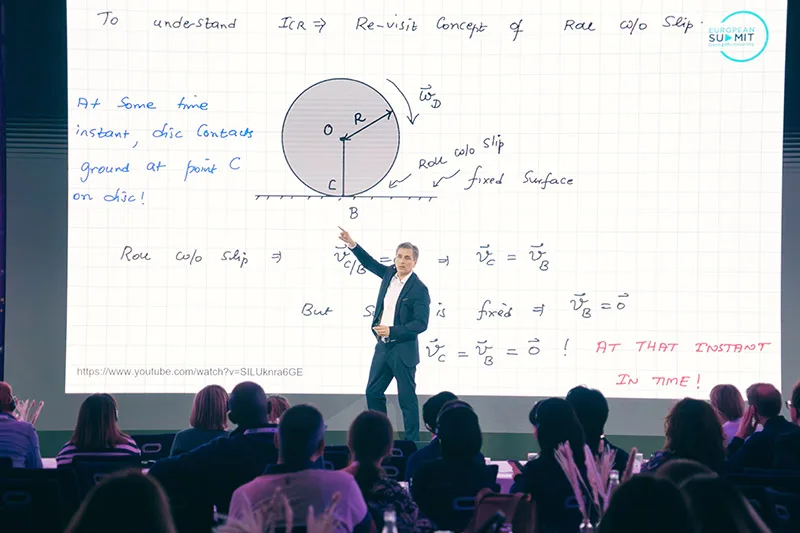 To understand ICR ⇒ Re-visit Concept of Roll w/o Slip.
EUROPEAN
SUMMIT
At Some time
instant, disc Contacts
ground at point C
on disc!
O
R
ω⃗_D
C
B
Roll w/o slip
fixed surface
Roll w/o slip ⇒ v⃗_C/B = ⇒ v⃗_C = v⃗_B
But S is fixed ⇒ v⃗_B = 0⃗
v⃗_C = v⃗_B = 0⃗ ! AT THAT INSTANT
IN TIME!
https://www.youtube.com/watch?v=SILUknra6GE